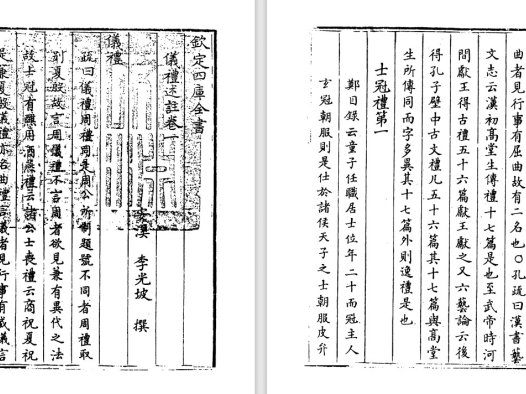 欽定四庫全書
儀禮述註卷一
安溪 李光坡 撰
儀禮
疏曰儀禮周禮同是周公所制題號不同者周禮取
別夏殷故言周儀禮不言周者欲見兼有異代之法
故士冠有醮用酒燕禮云諸公士喪禮云商祝夏祝
是兼夏殷儀禮亦名曲禮言儀者見行事有威儀言
曲者見行事有屈曲故有二名也〇孔疏曰漢書藝
文志云漢初高堂生傳禮十七篇是也至武帝時河
間獻王得古禮五十六篇獻王獻之又六藝論云後
得孔子壁中古文禮凡五十六篇其十七篇與高堂
生所傳同而字多異其十七篇外則逸禮是也
士冠禮第一
鄭目錄云童子任職居士位年二十而冠主人
玄冠朝服則是仕於諸侯天子之士朝服皮弁